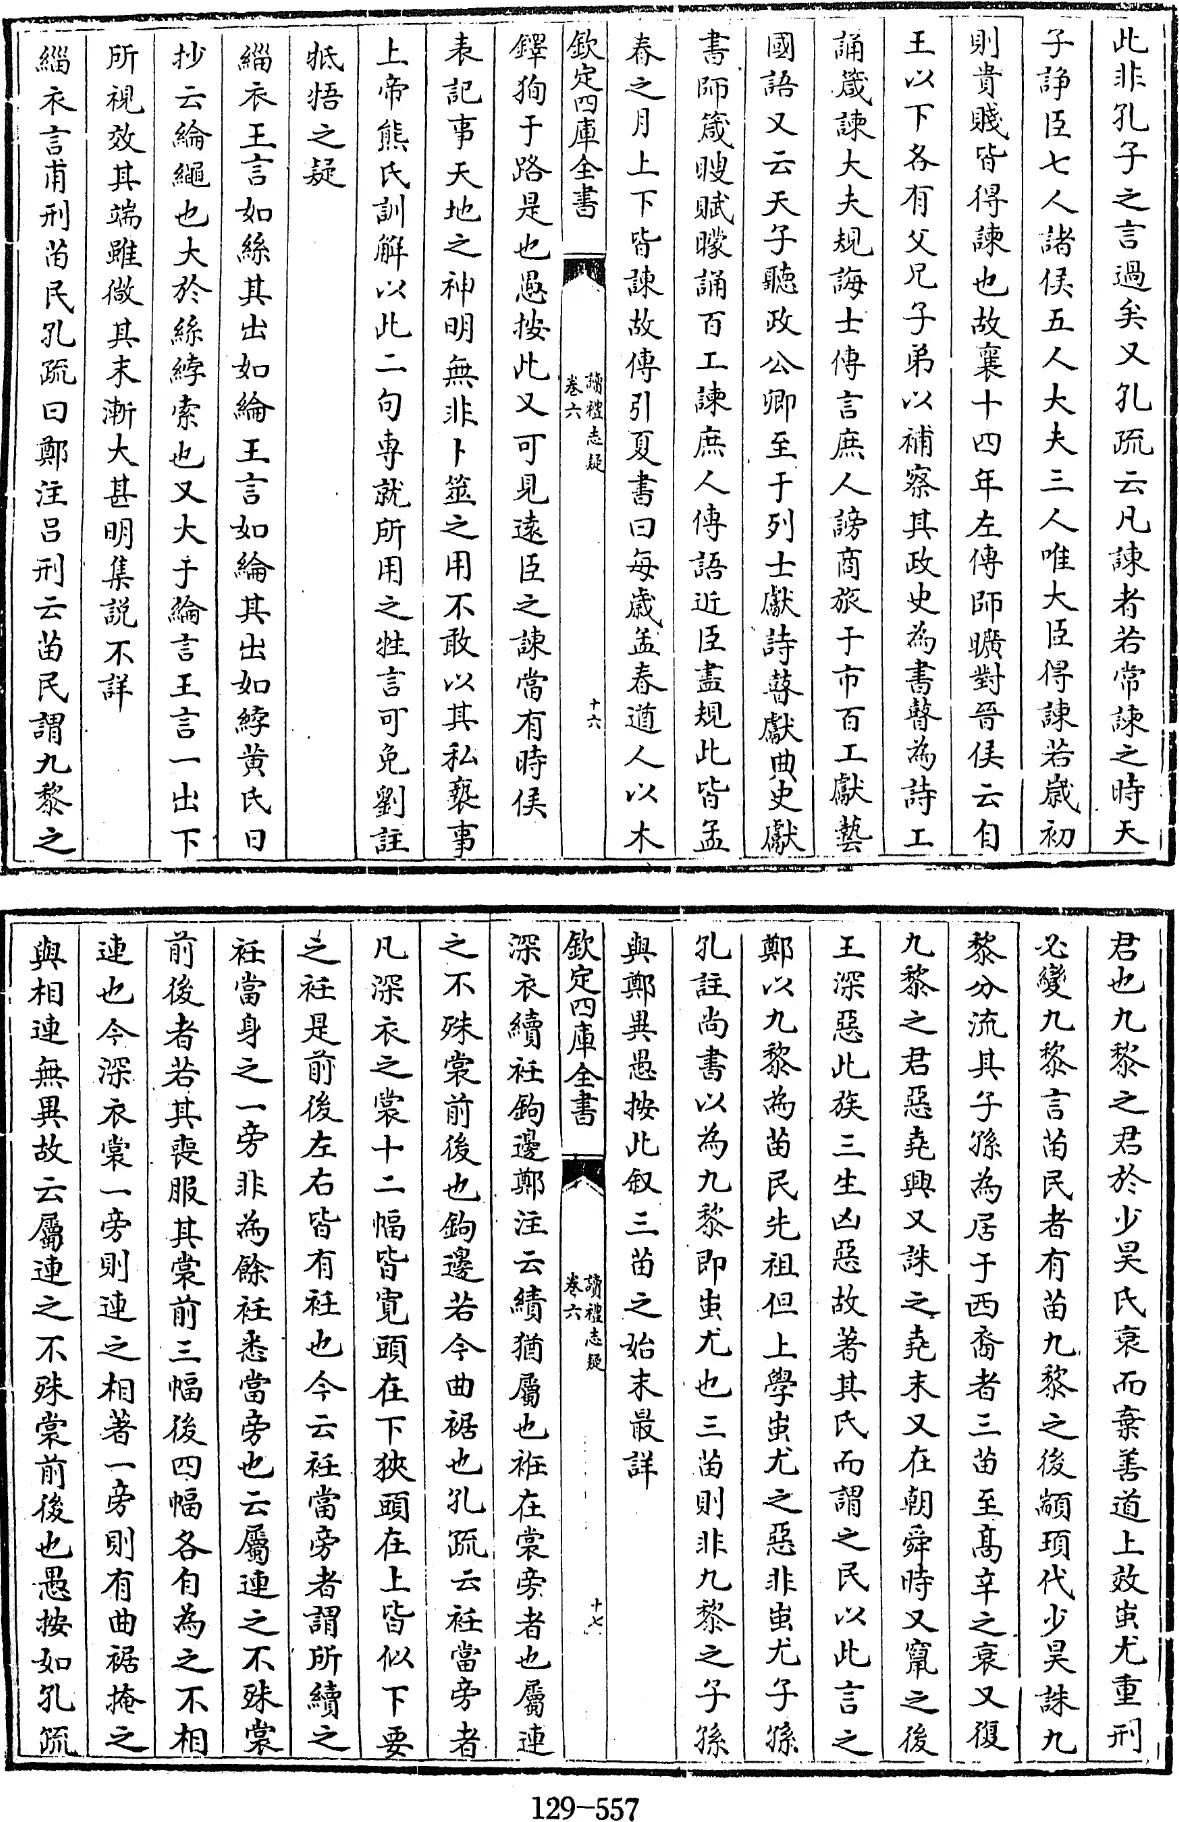 此非孔子之言過矣又孔疏云凡諫者若常諫之時天
子諍臣七人諸侯五人大夫三人唯大臣得諫若歲初
則貴賤皆得諫也故襄十四年左傳師曠對晉侯云自
王以下各有父兄子弟以補察其政史為書瞽為詩工
誦箴諫大夫規誨士傳言庶人謗商旅于市百工獻藝
國語又云天子聽政公卿至于列士獻詩瞽獻曲史獻
書師箴瞍賦矇誦百工諫庶人傳語近臣盡規此皆孟
春之月上下皆諫故傳引夏書曰每歲孟春遒人以木
欽定四庫全書
讀禮志疑
卷六
十六
鐸狥于路是也愚按此又可見遠臣之諫當有時侯
表記事天地之神明無非卜筮之用不敢以其私褻事
上帝熊氏訓解以此二句專就所用之牲言可免劉註
牴牾之疑
緇衣王言如絲其出如綸王言如綸其出如綍黄氏曰
抄云綸繩也大於絲綍索也又大于綸言王言一出下
所視效其端雖微其末漸大甚明集説不詳
緇衣言甫刑苗民孔疏曰鄭注吕刑云苗民謂九黎之
君也九黎之君於少昊氏衰而棄善道上效蚩尤重刑
必變九黎言苗民者有苗九黎之後顓頊代少昊誅九
黎分流其子孫為居于西裔者三苗至髙辛之衰又復
九黎之君惡堯興又誅之堯末又在朝舜時又竄之後
王深惡此族三生凶惡故著其氏而謂之民以此言之
鄭以九黎為苗民先祖但上學蚩尤之惡非蚩尤子孫
孔註尚書以為九黎即蚩尤也三苗則非九黎之子孫
與鄭異愚按此叙三苗之始末最詳
欽定四庫全書
讀禮志疑
卷六
十七
深衣續衽鉤邊鄭注云續猶屬也衽在裳旁者也屬連
之不殊裳前後也鉤邊若今曲裾也孔疏云衽當旁者
凡深衣之裳十二幅皆寛頭在下狹頭在上皆似下要
之衽是前後左右皆有衽也今云衽當旁者謂所續之
衽當身之一旁非為餘衽悉當旁也云屬連之不殊裳
前後者若其喪服其裳前三幅後四幅各自為之不相
連也今深衣裳一旁則連之相著一旁則有曲裾掩之
與相連無異故云屬連之不殊裳前後也愚按如孔疏
129-557